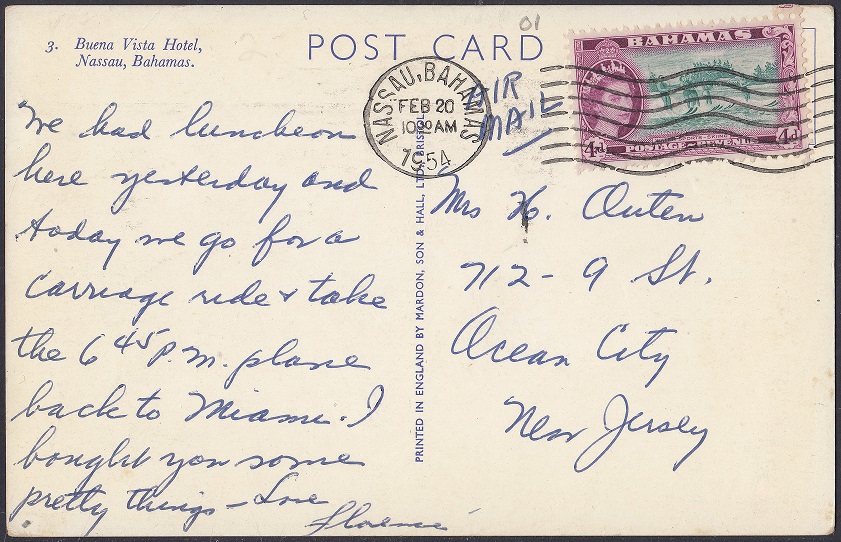 01
3. Buena Vista Hotel,
Nassau, Bahamas.
POST CARD
NASSAU, BAHAMAS
FEB 20
10 30 AM
1954
AIR
MAIL
BAHAMAS
4d
4d
POSTAGE & REVENUE
We had luncheon
here yesterday and
today we go for a
carriage ride & take
the 6 45 P.M. plane
back to Miami. I
bought you some
pretty things – Love
Florence
PRINTED IN ENGLAND BY MARDON, SON & HALL, LTD., BRISTOL
Mrs H. Outen
712 - 9 St.
Ocean City
New Jersey